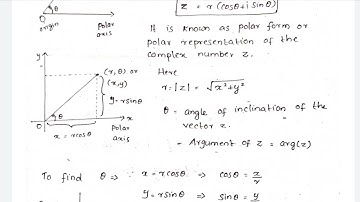 z = r (cosθ + i sinθ)
θ
O
origin
Polar
axis
It is known as polar form or
polar representation of the
complex number z.
y
(r, θ) or
(x, y)
y = r sinθ
r
θ
O
x
x = r cosθ
Polar
axis
Here
r = |z| = √x²+y²
θ = angle of inclination of the
vector z.
= Argument of z = arg(z)
To find θ ⇒ x = r cosθ ⇒ cosθ = x/r
y = r sinθ ⇒ sinθ = y/r